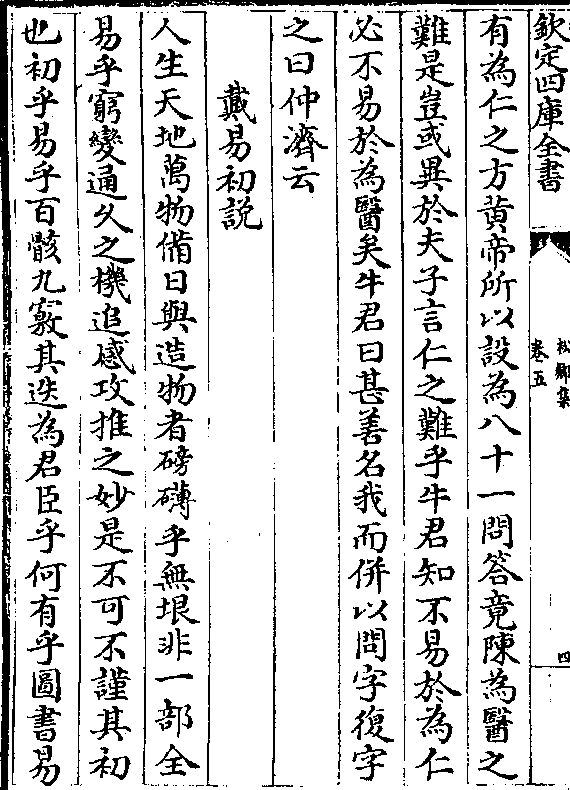 欽定四庫全書
松鄉集
卷五
四
有為仁之方黄帝所以設為八十一問答竟陳為醫之
難是豈或異於夫子言仁之難乎牛君知不易於為仁
必不易於為醫矣牛君曰甚善名我而併以問字復字
之曰仲濟云
戴易初說
人生天地萬物備日與造物者磅礴乎無垠非一部全
易乎窮變通久之機追感攻推之妙是不可不謹其初
也初乎易乎百骸九竅其迭為君臣乎何有乎圖書易